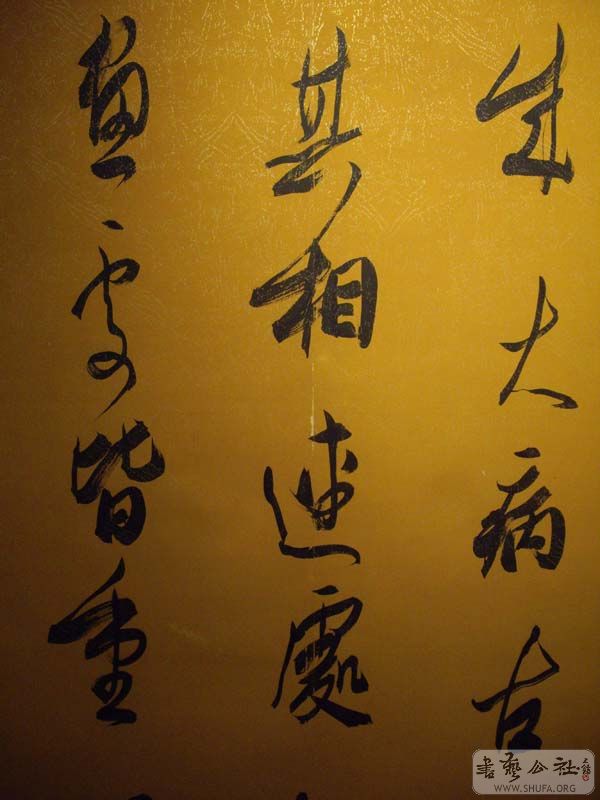 成大病古
其相連處
畫處皆重
書藝公社
WWW.SHUFA.ORG